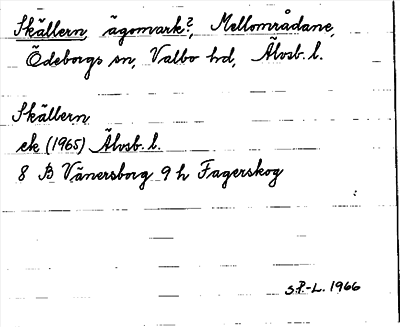 Skällern, ägomark?, Mellområdane,
Ödeborgs sn, Valbo hd, Älvsb. l.
Skällern
ek (1965) Älvsb. l.
8 B Vänersborg 9 h Fagerskog
S.P.-L. 1966